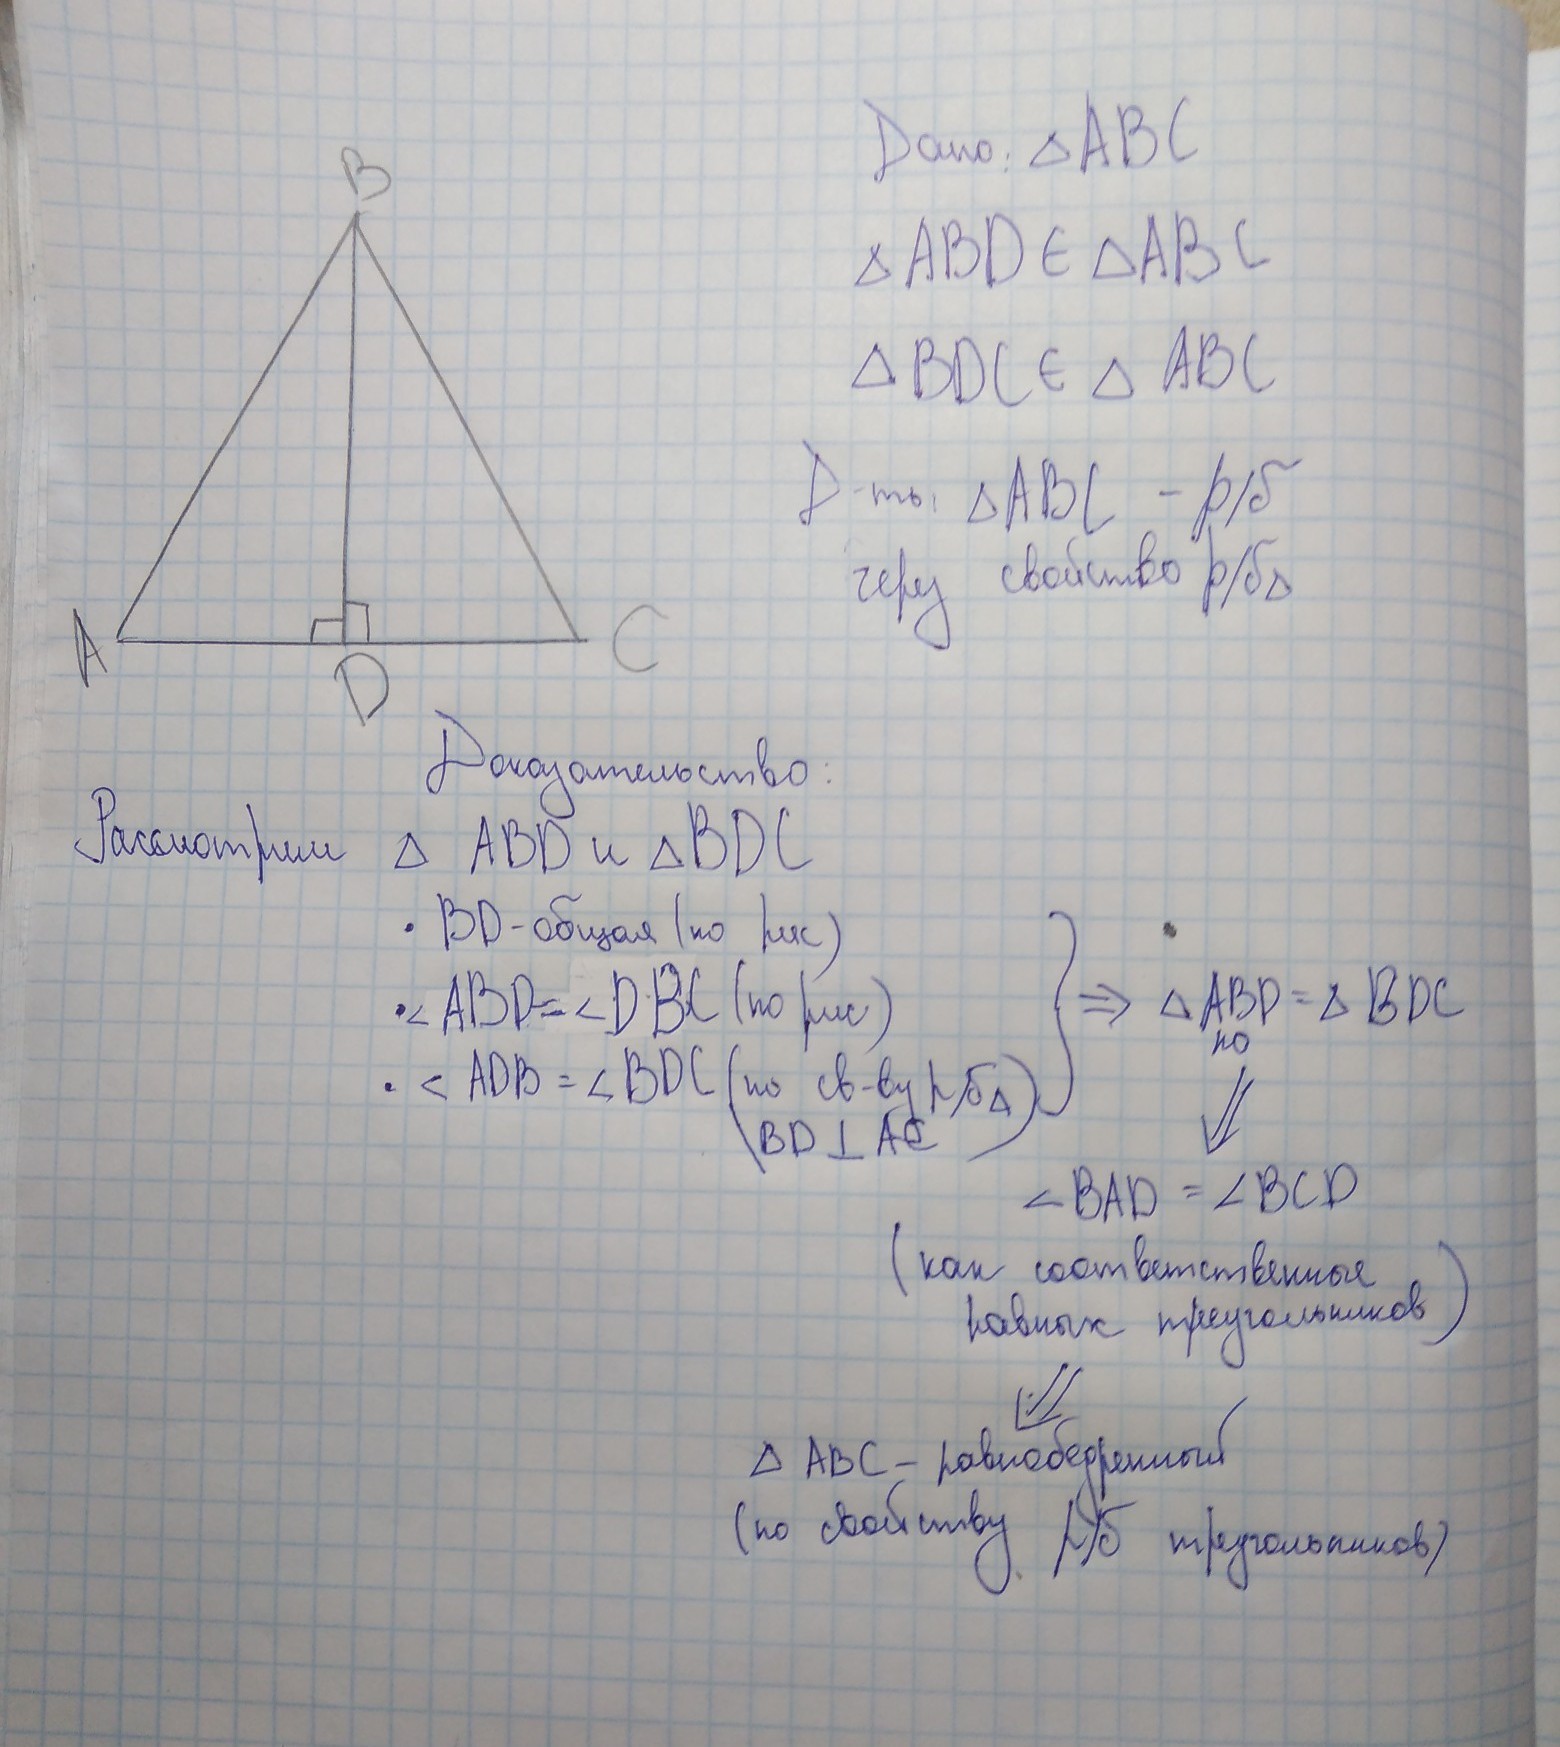 B
A
D
C
Дано: △ABC
△ABD ∈ △ABC
△BDC ∈ △ABC
Д-ть: △ABC - р/б
через свойство р/б△
Доказательство:
Рассмотрим △ ABD и △BDC
• BD-общая (по рис)
• ∠ABD=∠DBC (по рис)
• ∠ADB=∠BDC (по св-ву р/б△
BD⊥AC)
⇒ △ABD=△BDC
по
⇓
∠BAD = ∠BCD
(как соответственные
равных треугольников)
⇓
△ABC - равнобедренный
(по свойству р/б треугольников)